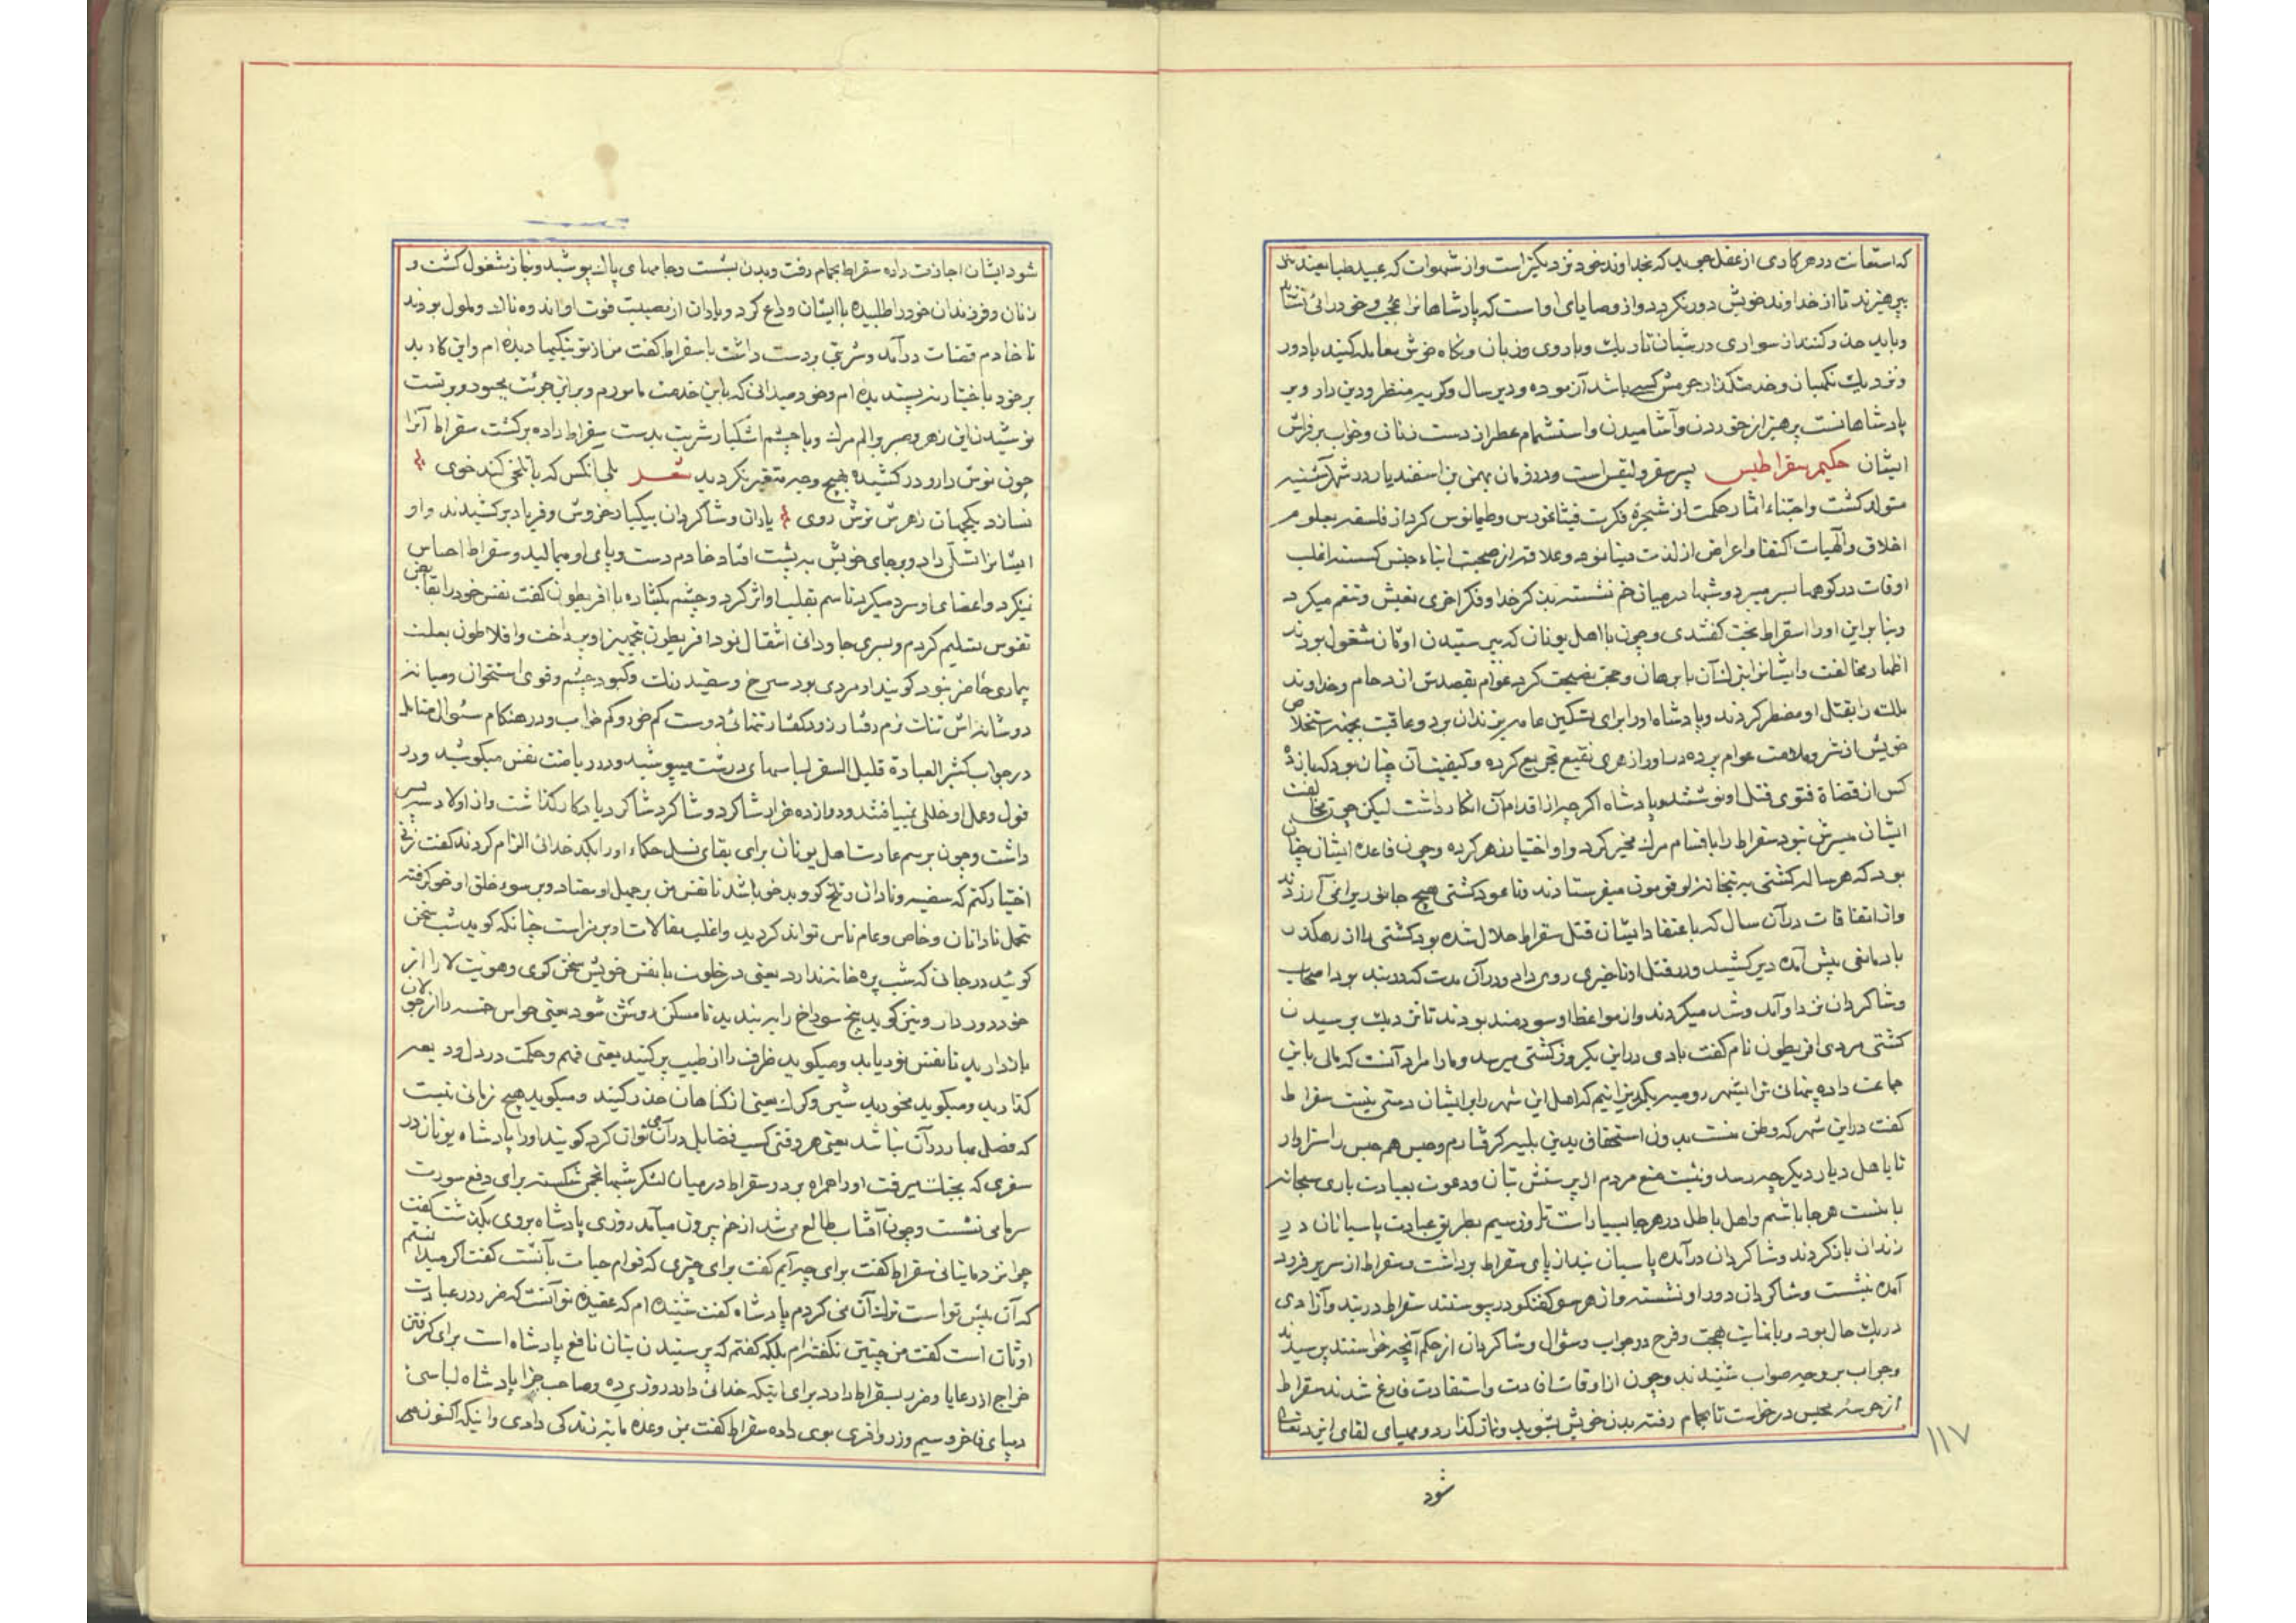 که استعانت در هر کاری از عقل جویید که بخداوند خود نزدیکتر است و از شهوات که عبید طبایعیند
بپرهیزند تا از خداوند خویش دور نگردد و از وصایای او است که پادشاهانرا عجب و خودرائی نشاید
و باید حذر کنند از سواری در شبان تاریک و با روی و زبان و نگاه خوش معامله کنید با دور
و نزدیک نگهبان و خدمتگذار حرمش کسی باشد آزموده و دیر سال و کریه منظر و دین دار و بر
پادشاهانست پرهیز از خوردن و آشامیدن و استشمام عطر از دست زنان و خواب بر فراش
ایشان حکیم سقراطیس پسر سقرولیقس است و در زمان بهمن بن اسفندیار در شهر
متولد گشت و اجتناء اثمار حکمت از شجرهٔ فکرت فیثاغورس و طیمانوس کرد از فلسفه بعلوم
اخلاق و آلهیات اکتفا و اعراض از لذت دنیا نمود و علاقه از صحبت ابناء جنس کسسته اغلب
اوقات در کوهها بسر میبرد و شبها در میان خم نشسته بذکر خدا و فکر اخری تعیش و تنعم میکرد
و بنا براین او را سقراط نخت گفتندی و چون با اهل یونان که بپرستیدن اوثان مشغول بودند
اظهار مخالفت و ایشانرا از آن با برهان و حجت نصیحت کرد عوام بقصدش ازدحام و خداوند
ملک را بقتل او مضطر کردند و پادشاه او را برای تسکین عامه بزندان برد و عاقبت بجهة استخلاص
خویش از شر و ملامت عوام پرده در او را زهری نقیع تجریع کرده و کیفیت آن چنان بود که یازده
کس از قضاة فتوی قتل او نوشتند و پادشاه اگرچه از اقدام آن انکار داشت لیکن چون مخالفت
ایشان میسرش نبود سقراط را باقسام مرگ مخیر کرد و او اختیار زهر کرده و چون قاعده ایشان چنان
بود که هر ساله کشتی به بتخانه میفرستادند و تا عود کشتی هیچ جانور برا نمی‌آزردند
و از اتفاقات در آن سال که باعتقاد ایشان قتل سقراط حلال شده بود کشتی را از رهگذر
باد مانعی پیش آمده دیر کشید و در قتل او تاخیری روی داد و در آن مدت که در بند بود اصحاب
و شاگردان نزد او آمد و شد میکردند و از مواعظ او سودمند بودند تا نزدیک برسیدن
کشتی مردی افریطون نام گفت باری در این یکروز کشتی میرسد و ما را مراد آنست که مالی باین
جماعت داده پنهانی ترا بشهر رومیه بگریزانیم که اهل این شهر را بر ایشان دستی نیست سقراط
گفت در این شهر که وطن منست بدون استحقاق بدین بلیه گرفتارم و حبس هم حبس را سزاوار
تا با اهل دیار دیگر چه رسد و نیست منع مردم از پرستش بتان و دعوت بعبادت باری سبحانه
با منست هر جا باشم و اهل باطل در هر جا بسیار است روز سیم بطریق عبادت پاسبانان در
زندان باز کردند و شاگردان درآمده پاسبان بند از پای سقراط برداشت و سقراط از سریر فرود
آمده بنشست و شاگردان دور او نشسته و از هر سو گفتگو در پیوستند سقراط در بند و آزادی
در یک حال بود و با نهایت بهجت و فرح در جواب و سؤال و شاگردان از حکم آنچه خواستند پرسیدند
و جواب بر وجه صواب شنیدند و چون از اوقات افادت و استفادت فارغ شدند سقراط
از حرسهٔ محبس درخواست تا بحمام رفته بدن خویش بشوید و نماز گذارد و مهیای لقای ایزد تعالی
۱۱۷
شود
شود ایشان اجازت داده سقراط بحمام رفت و بدن بشست و جامهای پاک پوشید و بنماز مشغول گشت و
زنان و فرزندان خود را طلبیده با ایشان وداع کرد و یاران از مصیبت فوت او اندوهناک و ملول بودند
تا خادم قضات درآمد و شربتی بر دست داشت با سقراط گفت من از تو نیکیها دیده‌ام و این کار بد
بر خود باختیار نپسندیده‌ام و خود میدانی که باین خدمت مامورم و بر این جرئت مجبور و بر تست
نوشیدن این زهر و صبر و الم مرگ و با چشم اشکبار شربت بدست سقراط داده برگشت سقراط آنرا
چون نوش دارو در کشیده بهیچ وجه متغیر نگردید شعر بلی آنکس که با تلخی کند خوی
نسازد یکجهان زهرش ترش روی یاران و شاگردان بیکبار خروش و فریاد برکشیدند و او
ایشانرا تسلی داد و بر جای خویش به پشت افتاد خادم دست و پای او میمالید و سقراط احساس
نمیکرد و اعضای او سرد میگردید تا سم بقلب او اثر کرد و چشم بگشاده با افریطون گفت نفس خود را بقابض
نفوس تسلیم کردم و بسرای جاودانی انتقال نمود افریطون بتجهیز او پرداخت و افلاطون بعلت
بیماری حاضر نبود گویند او مردی بود سرخ و سفید رنگ و کبود چشم و قوی استخوان و میانه
دو شانه‌اش تنگ نرم رفتار زود گفتار تنهائی دوست کم خور و کم خواب و در هنگام سئوال متامل
در جواب کثیر العباده قلیل السفر لباسهای درشت میپوشید و در ریاضت نفس میکوشید و در
قول و عمل او خللی نمییافتند و دوازده هزار شاگرد و شاگرد شاگرد یادگار گذاشت و از اولاد سه پسر
داشت و چون برسم عادت اهل یونان برای بقای نسل حکماء او را بکدخدائی الزام کردند گفت زنی
اختیار کنم که سفیه و نادان و تلخ گو و بدخو باشد تا نفس من بر جهل او معتاد و بر سوء خلق او خو گرفته
تحمل نادانان و خاص و عام ناس تواند کردید و اغلب مقالات او بر مز است چنانکه گوید شب سخن
گوئید در جائی که شب پره خانه ندارد یعنی در خلوت با نفس خویش سخن گوی و هویت لا را از
خود دور دار و نیز گوید پنج سوراخ را ببندید تا مسکن روشن شود یعنی حواس خمسه را از جولان
بازدارید تا نفس نور یابد و میگوید ظرف را از طیب پر کنید یعنی فهم و حکمت در دل ودیعه
گذارید و میگوید مخورید شیر و گرگ یعنی از گناهان حذر کنید و میگوید هیچ زمانی نیست
که فصل بهار در آن نباشد یعنی هر وقتی کسب فضایل در آن می‌توان کرد گویند او را پادشاه یونان در
سفری که بجنگ میرفت او را همراه برد و سقراط در میان لشکر شبها بخمی شکسته برای دفع سورت
سرما می نشست و چون آفتاب طالع می‌شد از خم بیرون میآمد روزی پادشاه بر وی بگذشت گفت
چرا نزد ما نیائی سقراط گفت برای چه آیم گفت برای چیزی که قوام حیات بآنست گفت اگر میدانستم
که آن پیش تو است ترک آن نمی کردم پادشاه گفت شنیده‌ام که عقیده تو آنست که ضرر در عبادت
اوثان است گفت من چنین نگفته‌ام بلکه گفتم که پرستیدن بتان نافع پادشاه است برای گرفتن
خراج از رعایا و ضرر بسقراط دارد برای اینکه خدائی دارد روزی ده و صاحب جزا پادشاه لباسی
دیبای فاخر و سیم و زر وافری بوی داده سقراط گفت بمن وعده مایه زندگی دادی و اینک اکنون